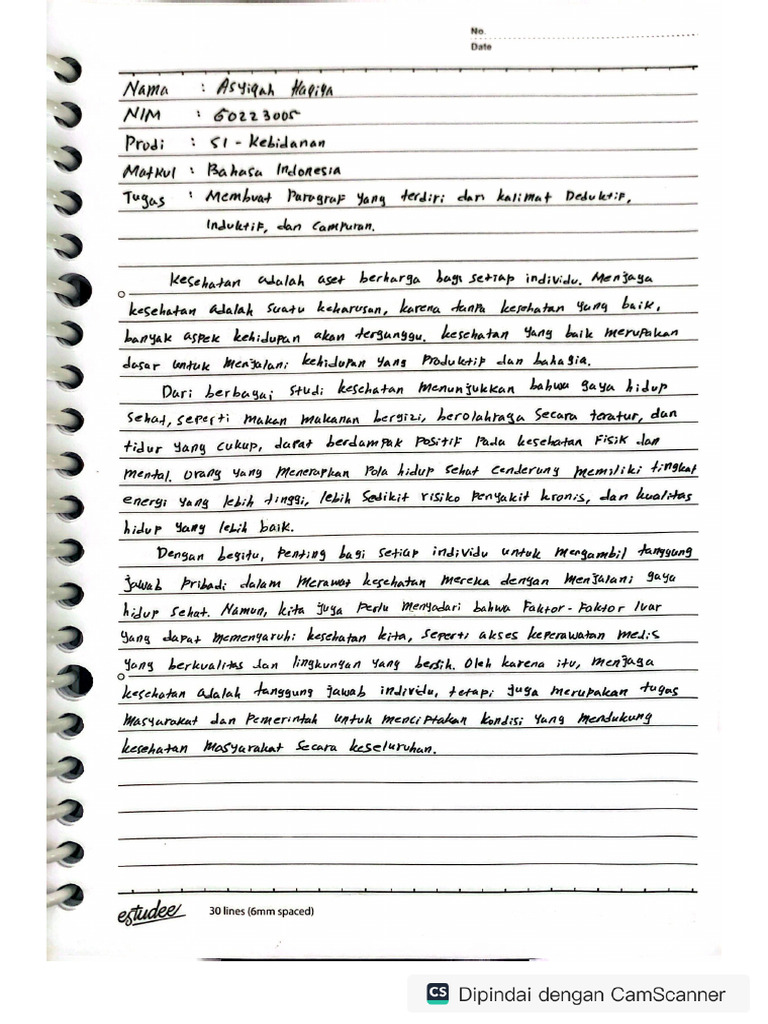 No.
Date
Nama : Asyiqah Haqiya
NIM : 60223005
Prodi : S1 - Kebidanan
Matkul : Bahasa Indonesia
Tugas : Membuat Paragraf yang terdiri dari kalimat Deduktif,
Induktif, dan Campuran.
Kesehatan adalah aset berharga bagi setiap individu. Menjaga
kesehatan adalah suatu keharusan, karena tanpa kesehatan yang baik,
banyak aspek kehidupan akan terganggu. kesehatan yang baik merupakan
dasar untuk menjalani kehidupan yang Produktif dan bahagia.
Dari berbagai studi kesehatan menunjukkan bahwa gaya hidup
sehat, seperti makan makanan bergizi, berolahraga secara teratur, dan
tidur yang cukup, dapat berdampak positif pada kesehatan fisik dan
mental. orang yang menerapkan pola hidup sehat cenderung memiliki tingkat
energi yang lebih tinggi, lebih sedikit risiko penyakit kronis, dan kualitas
hidup yang lebih baik.
Dengan begitu, penting bagi setiap individu untuk mengambil tanggung
jawab pribadi dalam merawat kesehatan mereka dengan menjalani gaya
hidup sehat. Namun, kita juga perlu menyadari bahwa Faktor-Faktor luar
yang dapat memengaruhi kesehatan kita, seperti akses keperawatan medis
yang berkualitas dan lingkungan yang bersih. Oleh karena itu, menjaga
kesehatan adalah tanggung jawab individu, tetapi juga merupakan tugas
masyarakat dan pemerintah untuk menciptakan kondisi yang mendukung
kesehatan masyarakat secara keseluruhan.
estudee 30 lines (6mm spaced)
CS Dipindai dengan CamScanner